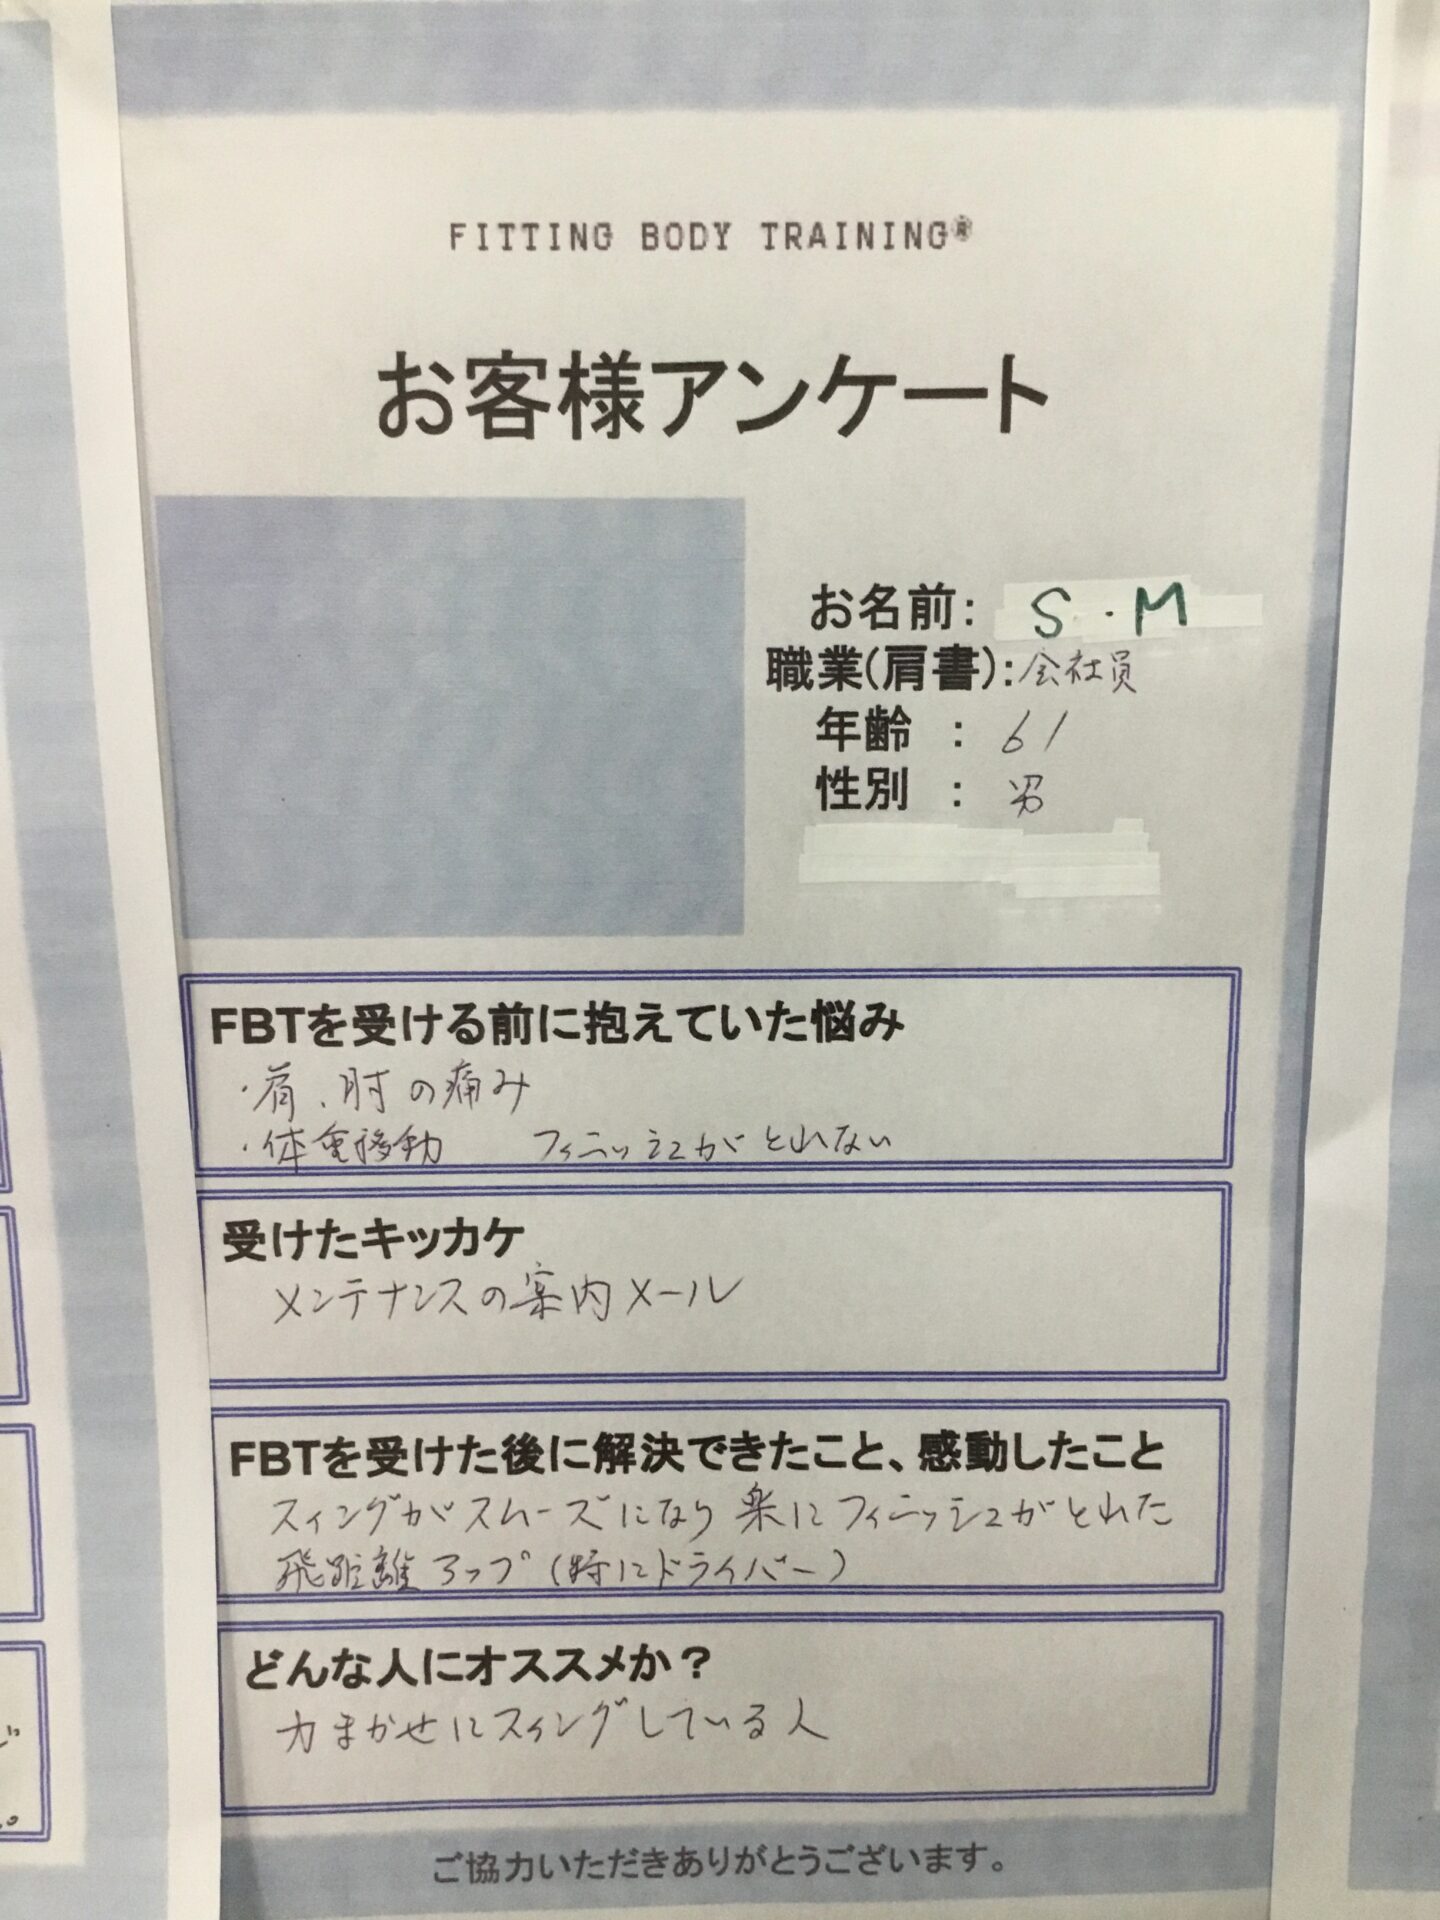 FITTING BODY TRAINING®
お客様アンケート
お名前： S・M
職業(肩書)：会社員
年齢 ： 61
性別 ： 男
FBTを受ける前に抱えていた悩み
・肩、肘の痛み
・体重移動 フィニッシュがとれない
受けたキッカケ
メンテナンスの案内メール
FBTを受けた後に解決できたこと、感動したこと
スィングがスムーズになり楽にフィニッシュがとれた
飛距離アップ(特にドライバー)
どんな人にオススメか？
力まかせにスィングしている人
ご協力いただきありがとうございます。